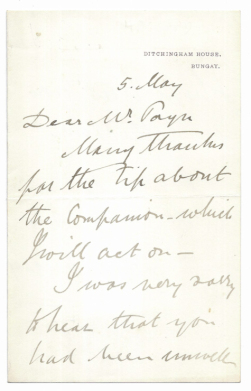 DITCHINGHAM HOUSE,
BUNGAY.
5. May
Dear Mr. Payn
Many thanks
for the tip about
the Companion - which
I will act on -
I was very sorry
to hear that you
had been unwell